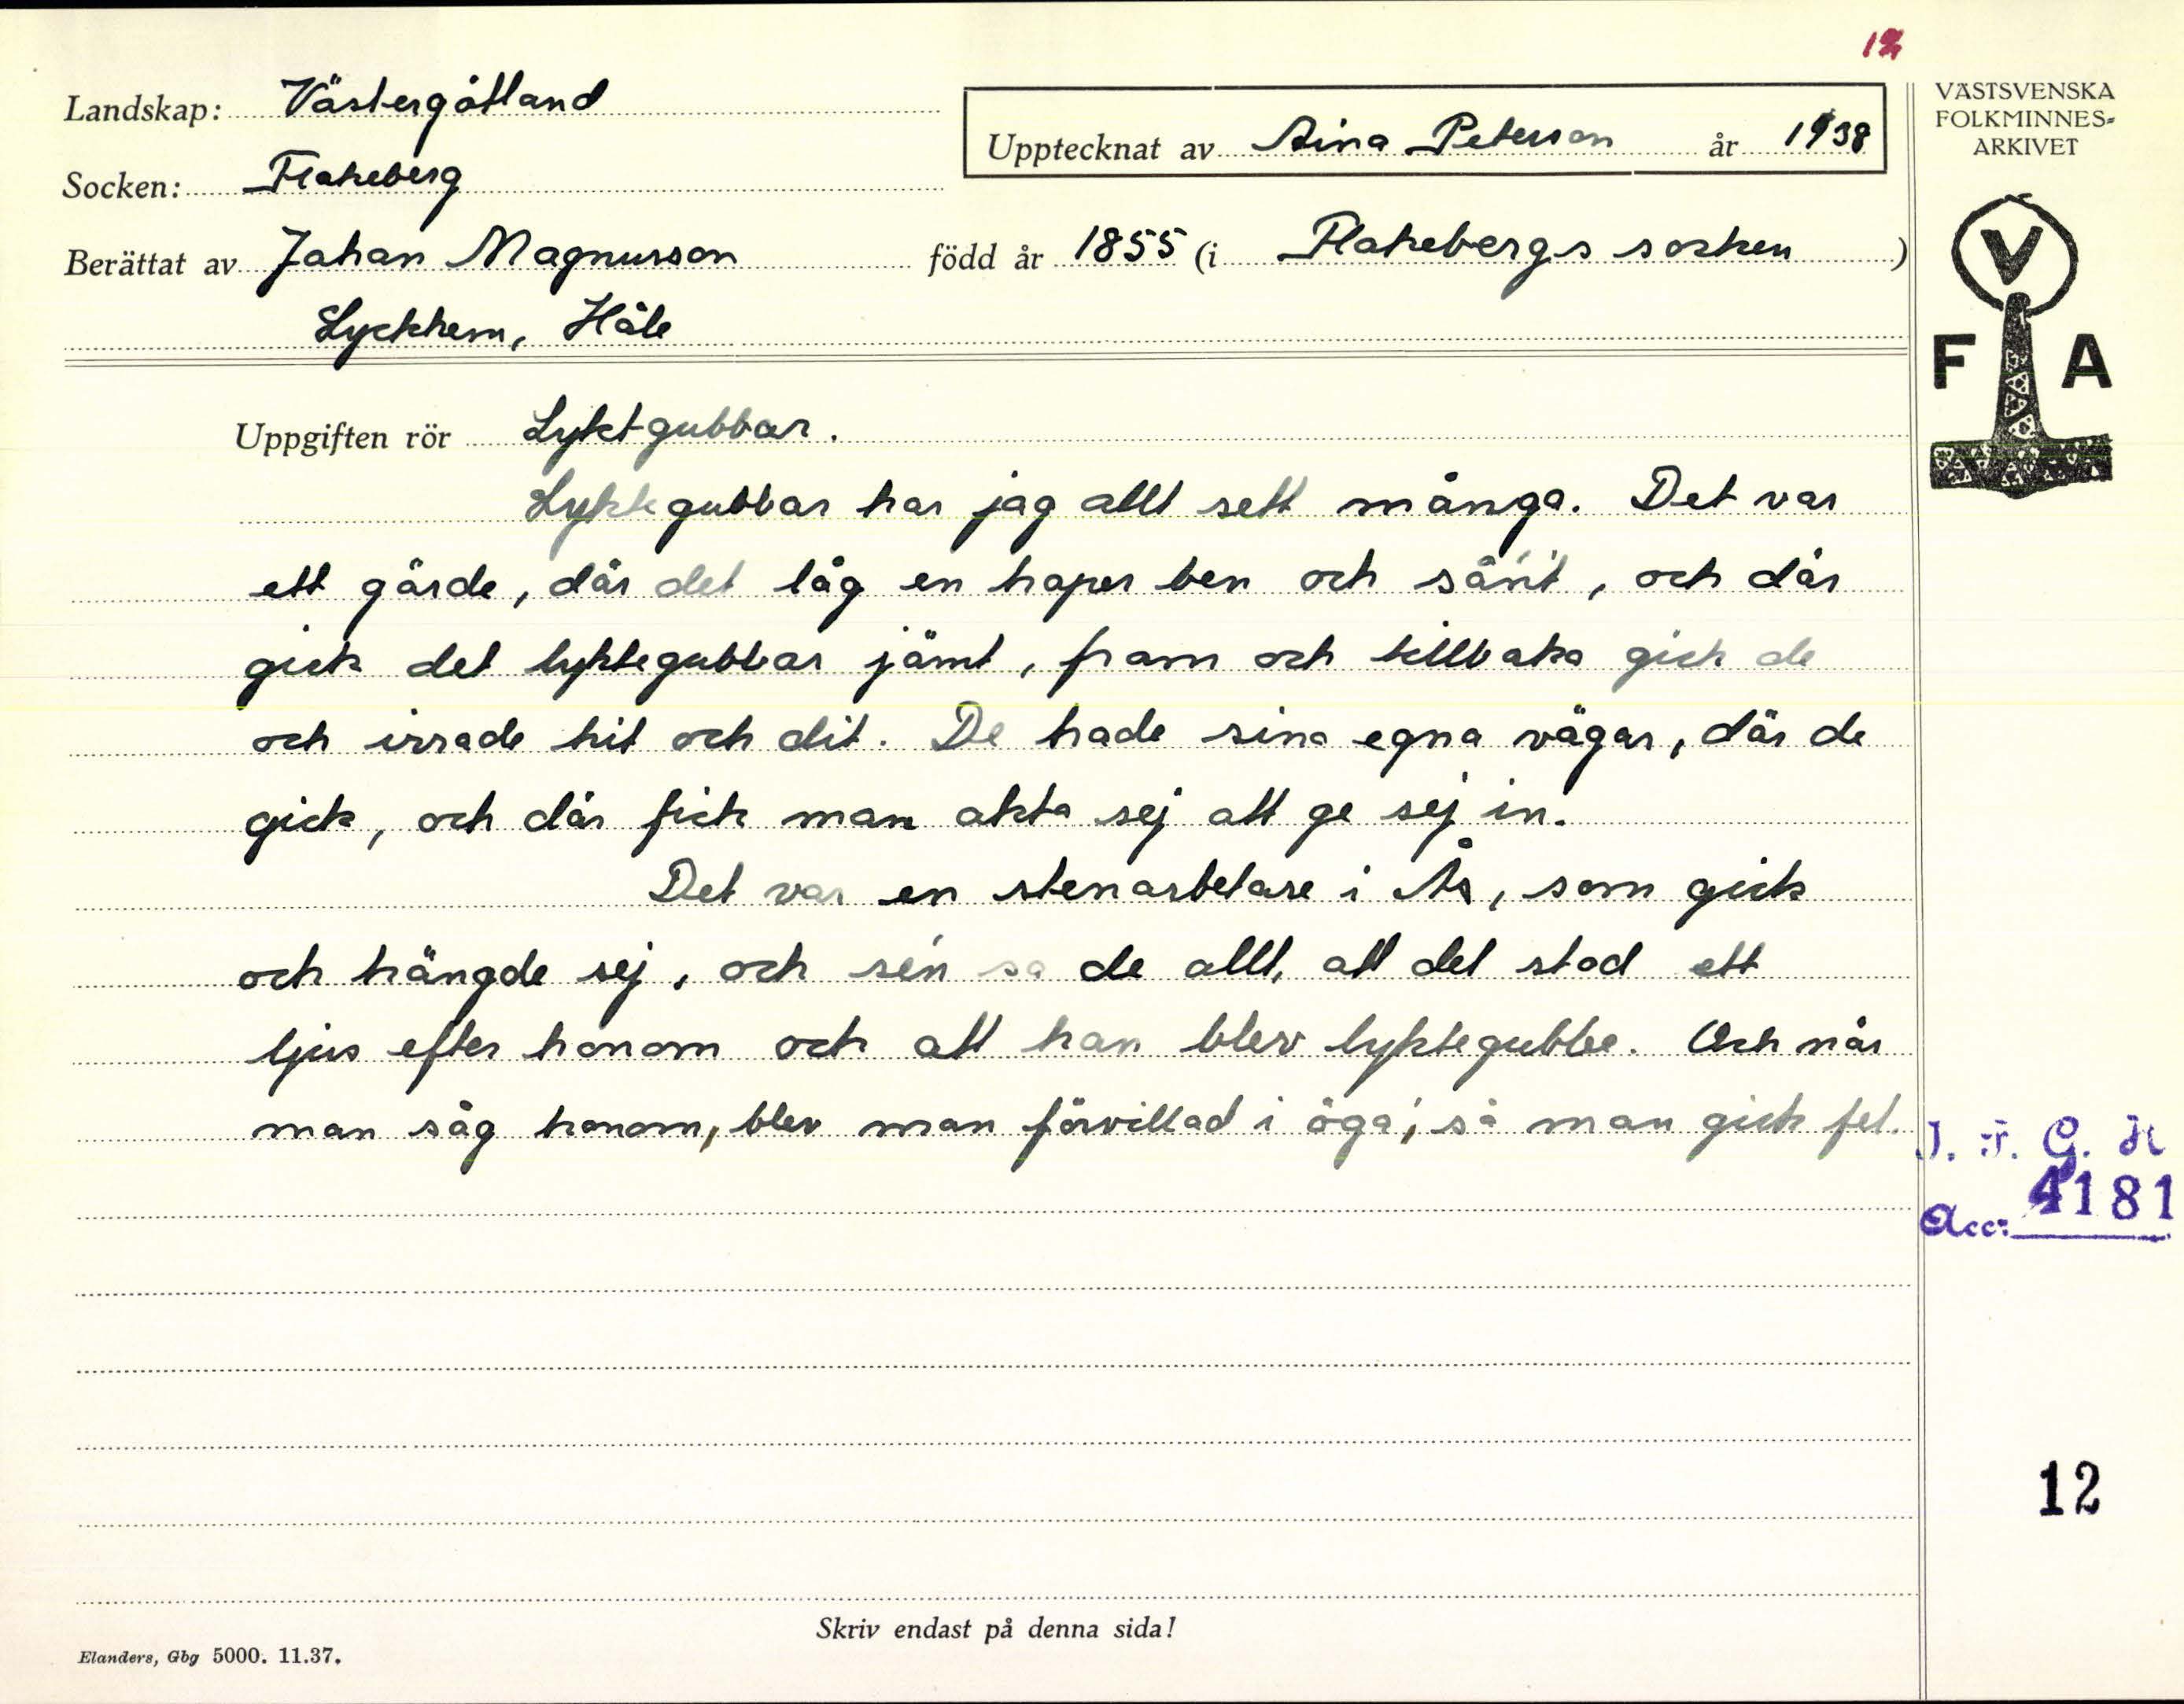 12
Landskap: Västergötland
Upptecknat av Aina Peterson år 1938
VÄSTSVENSKA
FOLKMINNES-
ARKIVET
Socken: Flakeberg
Berättat av Johan Magnusson född år 1855 (i Flakebergs socken)
Lyckhem, Häle
V
F A
Uppgiften rör Lyktgubbar.
Lyktegubbar har jag allt sett många. Det var
ett gärde, där det låg en hoper ben och sånt, och där
gick det lyktegubbar jämt, fram och tillbaka gick de
och irrade hit och dit. De hade sina egna vägar, där de
gick, och där fick man akta sej att ge sej in.
Det var en stenarbetare i Ås, som gick
och hängde sej, och sén sa de allt, att det stod ett
ljus efter honom och att han blev lyktegubbe. Och när
man såg honom, blev man förvillad i öga, så man gick fel.
I. F. G. H
Acc: 4181
12
Skriv endast på denna sida!
Elanders, Gbg 5000. 11.37.